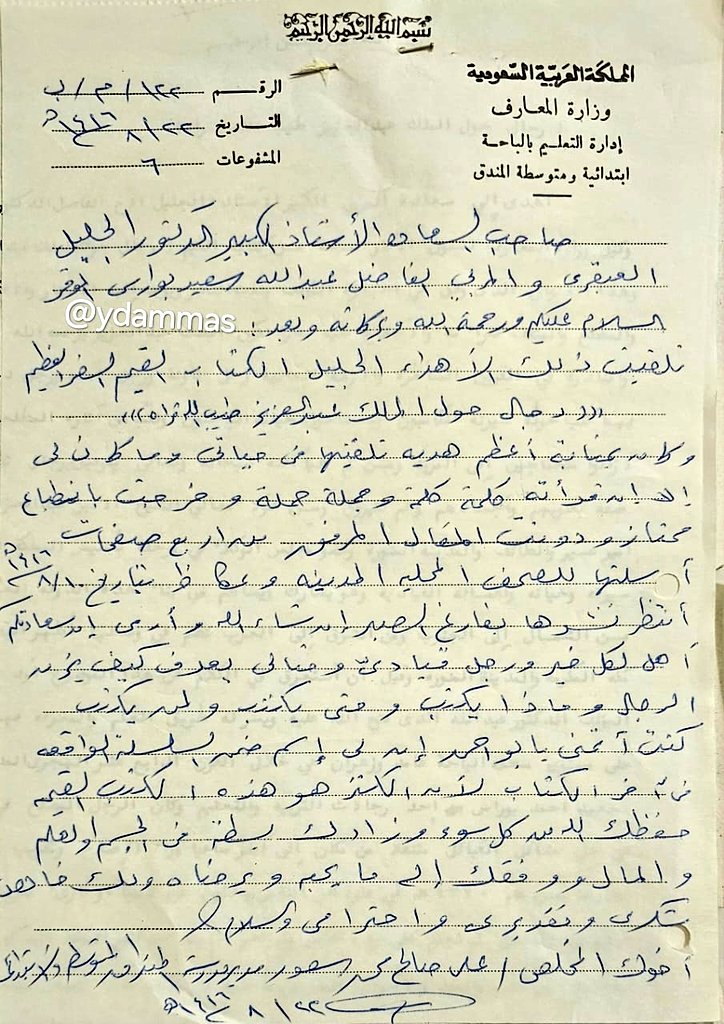 بسم الله الرحمن الرحيم
المملكة العربية السعودية
وزارة المعارف
إدارة التعليم بالباحة
ابتدائية ومتوسطة المندق
الرقم ١٢٢ / م / ب
التاريخ ٢٢ / ٨ / ١٤١٦ هـ
المشفوعات ٦
صاحب السعادة الأستاذ الكبير الدكتور الجليل
العبقري والمربي الفاضل عبدالله سعيد بوارس الموقر
@ydammas
السلام عليكم ورحمة الله وبركاته وبعد :
تلقيت ذلك الأهداء الجليل الكتاب القيم السفر العظيم
((( رجال حول الملك عبدالعزيز طيب الله ثراه )))
وكان بمثابة أعظم هديه تلقيتها في حياتي وما كان لي
إلا إن قرأته كلمة كلمة وجملة جملة وخرجت بانطباع
ممتاز ودونت المقال المرفق من اربع صفحات
أرسلتها للصحف المحليه المدينه وعكاظ بتاريخ ١٠ / ٨ / ١٤١٦ هـ
أنتظر نشرها بفارغ الصبر إن شاء الله وأرى إن سعادتكم
أهل لكل خير ورجل قيادي ومثالي يعرف كيف يزن
الرجال وماذا يكتب ومتى يكتب ولمن يكتب
كنت أتمنى يا بو احمد إن لي إسم ضمن السلسلة الواقعه
في آخر الكتاب لأن الكنز هو هذه الكتب القيمه
حفظك الله من كل سوء وزادك بسطة في الجسم والعلم
والمال ووفقك إلى ما يحبه ويرضاه ولك خالص
شكري وتقديري واحترامي والسلام
أخوك المخلص / علي صالح مدير مدرسة المندق المتوسطة والابتدائية
٢٢ / ٨ / ١٤١٦ هـ